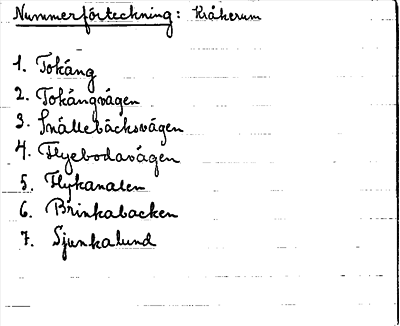 Nummerförteckning: Kråkerum
1. Tokäng
2. Tokängvägen
3. Snällebäcksvägen
4. Flyebodavägen
5. Flykanalen
6. Brinkabacken
7. Sjunkalund